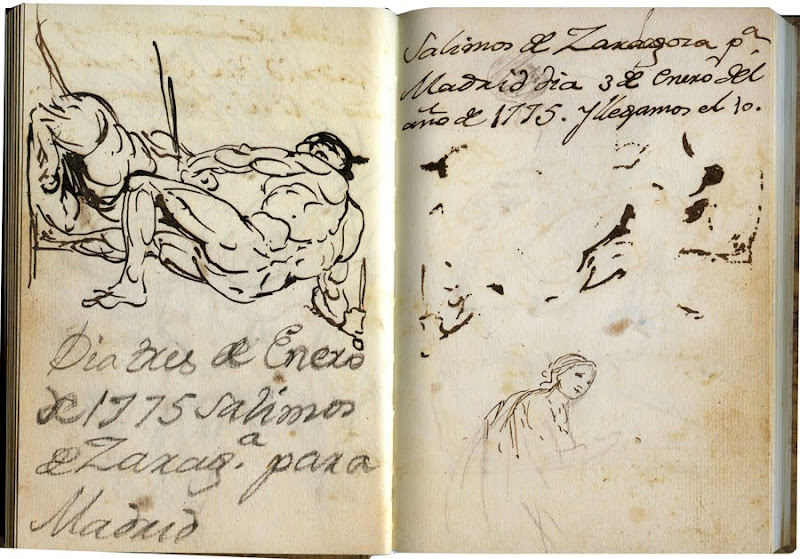 Dia tres de Enero
de 1775 Salimos
de Zarag.ª para
Madrid
Salimos de Zaragoza pª
Madrid dia 3 de Enero del
año de 1775. Y llegamos el 10.